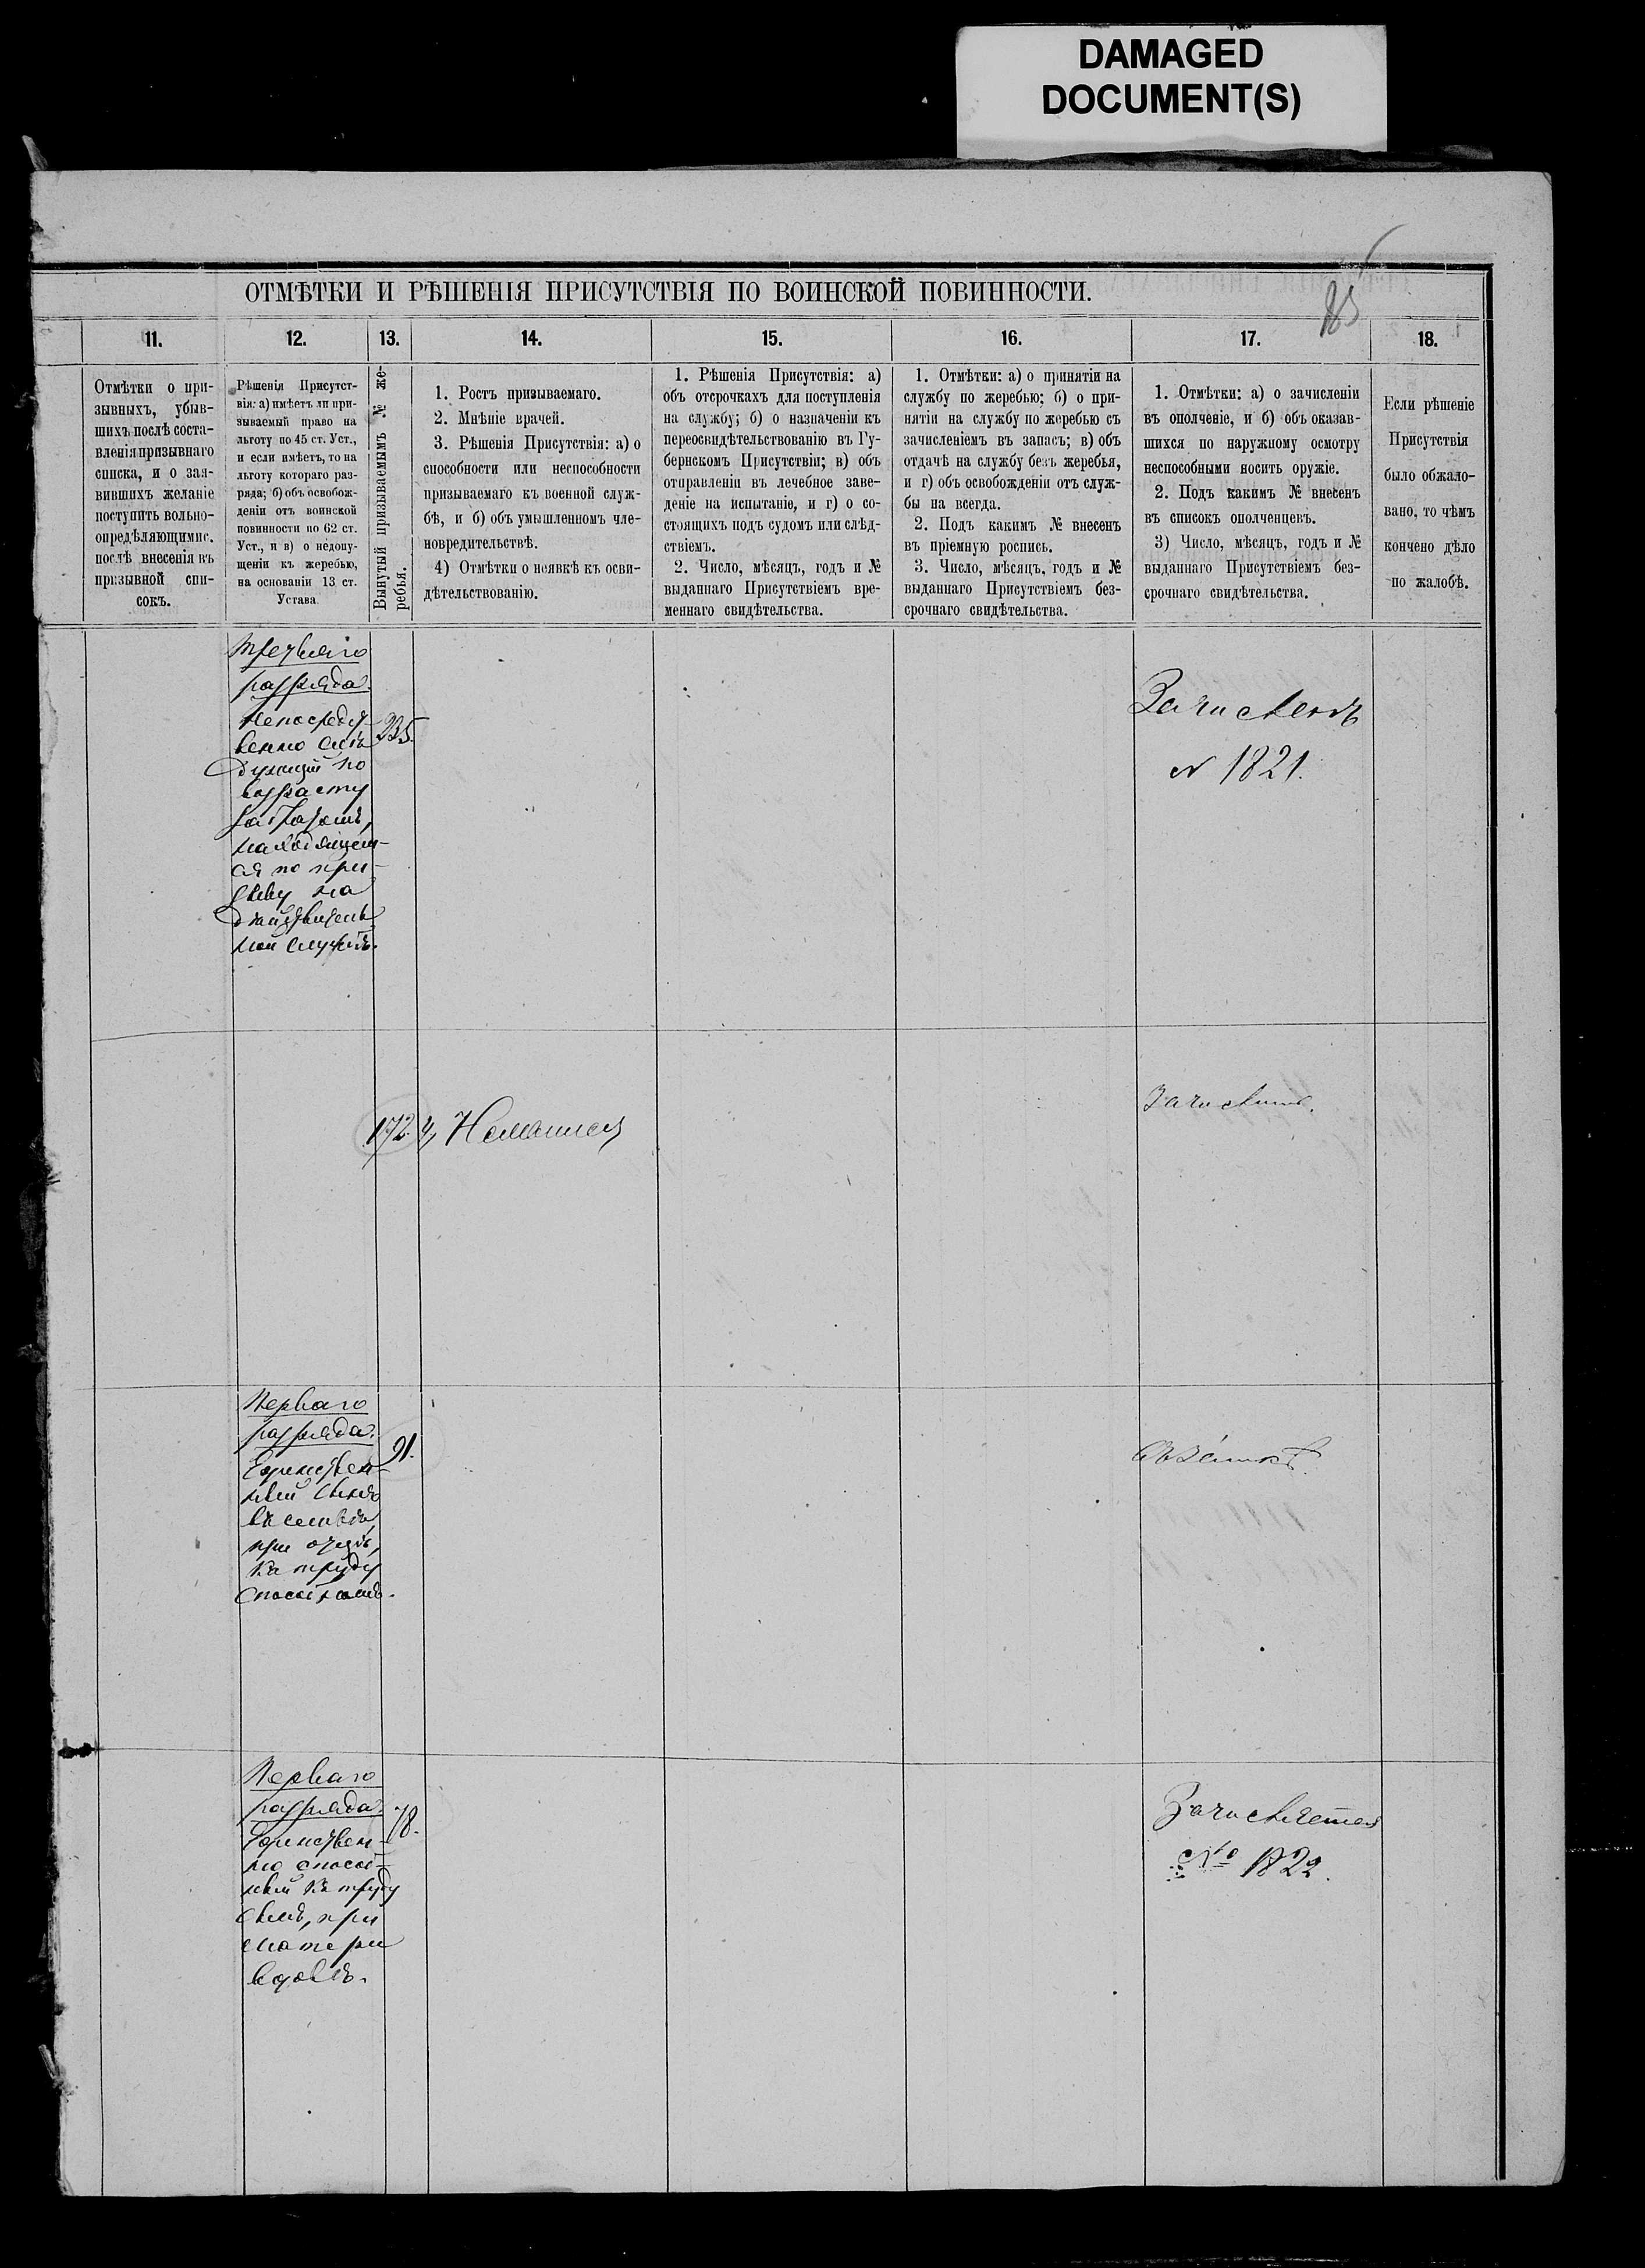 DAMAGED
DOCUMENT(S)
85
ОТМѢТКИ И РѢШЕНІЯ ПРИСУТСТВІЯ ПО ВОИНСКОЙ ПОВИННОСТИ.
11.
12.
13.
14.
15.
16.
17.
18.
Отмѣтки о при-
зывныхъ, убыв-
шихъ послѣ соста-
вленія призывнаго
списка, и о зая-
вившихъ желаніе
поступить вольно-
опредѣляющимис.
послѣ внесенія въ
призывной спи-
сокъ.
Рѣшенія Присутст-
вія: а) имѣетъ ли при-
зываемый право на
льготу по 45 ст. Уст.,
и если имѣетъ, то на
льготу котораго раз-
ряда; б) объ освобож-
деніи отъ воинской
повинности по 62 ст.
Уст., и в) о недопу-
щеніи къ жеребью,
на основаніи 13 ст.
Устава.
Вынутый призываемымъ № же-
ребья.
1. Ростъ призываемаго.
2. Мнѣніе врачей.
3. Рѣшенія Присутствія: а) о
способности или неспособности
призываемаго къ военной служ-
бѣ, и б) объ умышленномъ чле-
новредительствѣ.
4) Отмѣтки о неявкѣ къ осви-
дѣтельствованію.
1. Рѣшенія Присутствія: а)
объ отсрочкахъ для поступленія
на службу; б) о назначеніи къ
переосвидѣтельствованію въ Гу-
бернскомъ Присутствіи; в) объ
отправленіи въ лечебное заве-
деніе на испытаніе, и г) о со-
стоящихъ подъ судомъ или слѣд-
ствіемъ.
2. Число, мѣсяцъ, годъ и №
выданнаго Присутствіемъ вре-
меннаго свидѣтельства.
1. Отмѣтки: а) о принятіи на
службу по жеребью; б) о при-
нятіи на службу по жеребью съ
зачисленіемъ въ запасъ; в) объ
отдачѣ на службу безъ жеребья,
и г) объ освобожденіи отъ служ-
бы на всегда.
2. Подъ какимъ № внесенъ
въ пріемную роспись.
3. Число, мѣсяцъ, годъ и №
выданнаго Присутствіемъ без-
срочнаго свидѣтельства.
1. Отмѣтки: а) о зачисленіи
въ ополченіе, и б) объ оказав-
шихся по наружному осмотру
неспособными носить оружіе.
2. Подъ какимъ № внесенъ
въ списокъ ополченцевъ.
3) Число, мѣсяцъ, годъ и №
выданнаго Присутствіемъ без-
срочнаго свидѣтельства.
Если рѣшеніе
Присутствія
было обжало-
вано, то чѣмъ
кончено дѣло
по жалобѣ.
третьяго
разряда.
Непосредст-
венно слѣ
дующій по
возрасту
за братомъ,
находящем-
ся по при-
зыву на
дѣйствитель
ной службѣ.
235.
Зачисленъ
№ 1821.
172.
4, Неявился
Зачислить.
Перваго
разряда.
Единствен-
ный сынъ
въ семьѣ,
при отцѣ,
къ труду
способномъ.
91.
Перваго
разряда.
Единствен-
но способ-
ный къ труду
сынъ, при
матери
вдовѣ.
78.
Зачисляется
№ 1822.